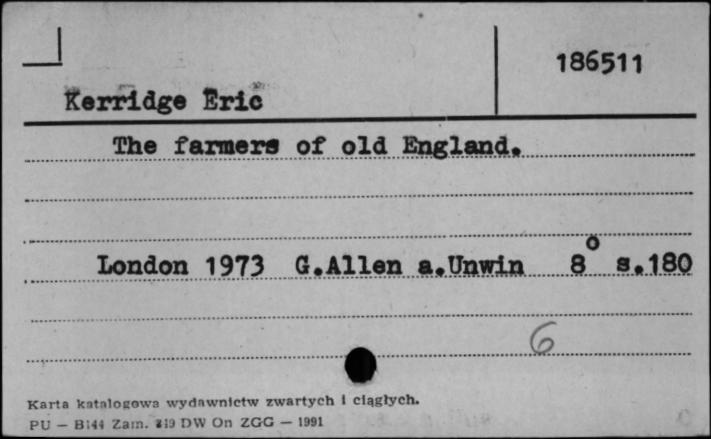 186511
Kerridge Eric
The farmers of old England.
London 1973 G.Allen a.Unwin 8° s.180
6
Karta katalogowa wydawnictw zwartych i ciągłych.
PU — B144 Zam. 219 DW On ZGG — 1991